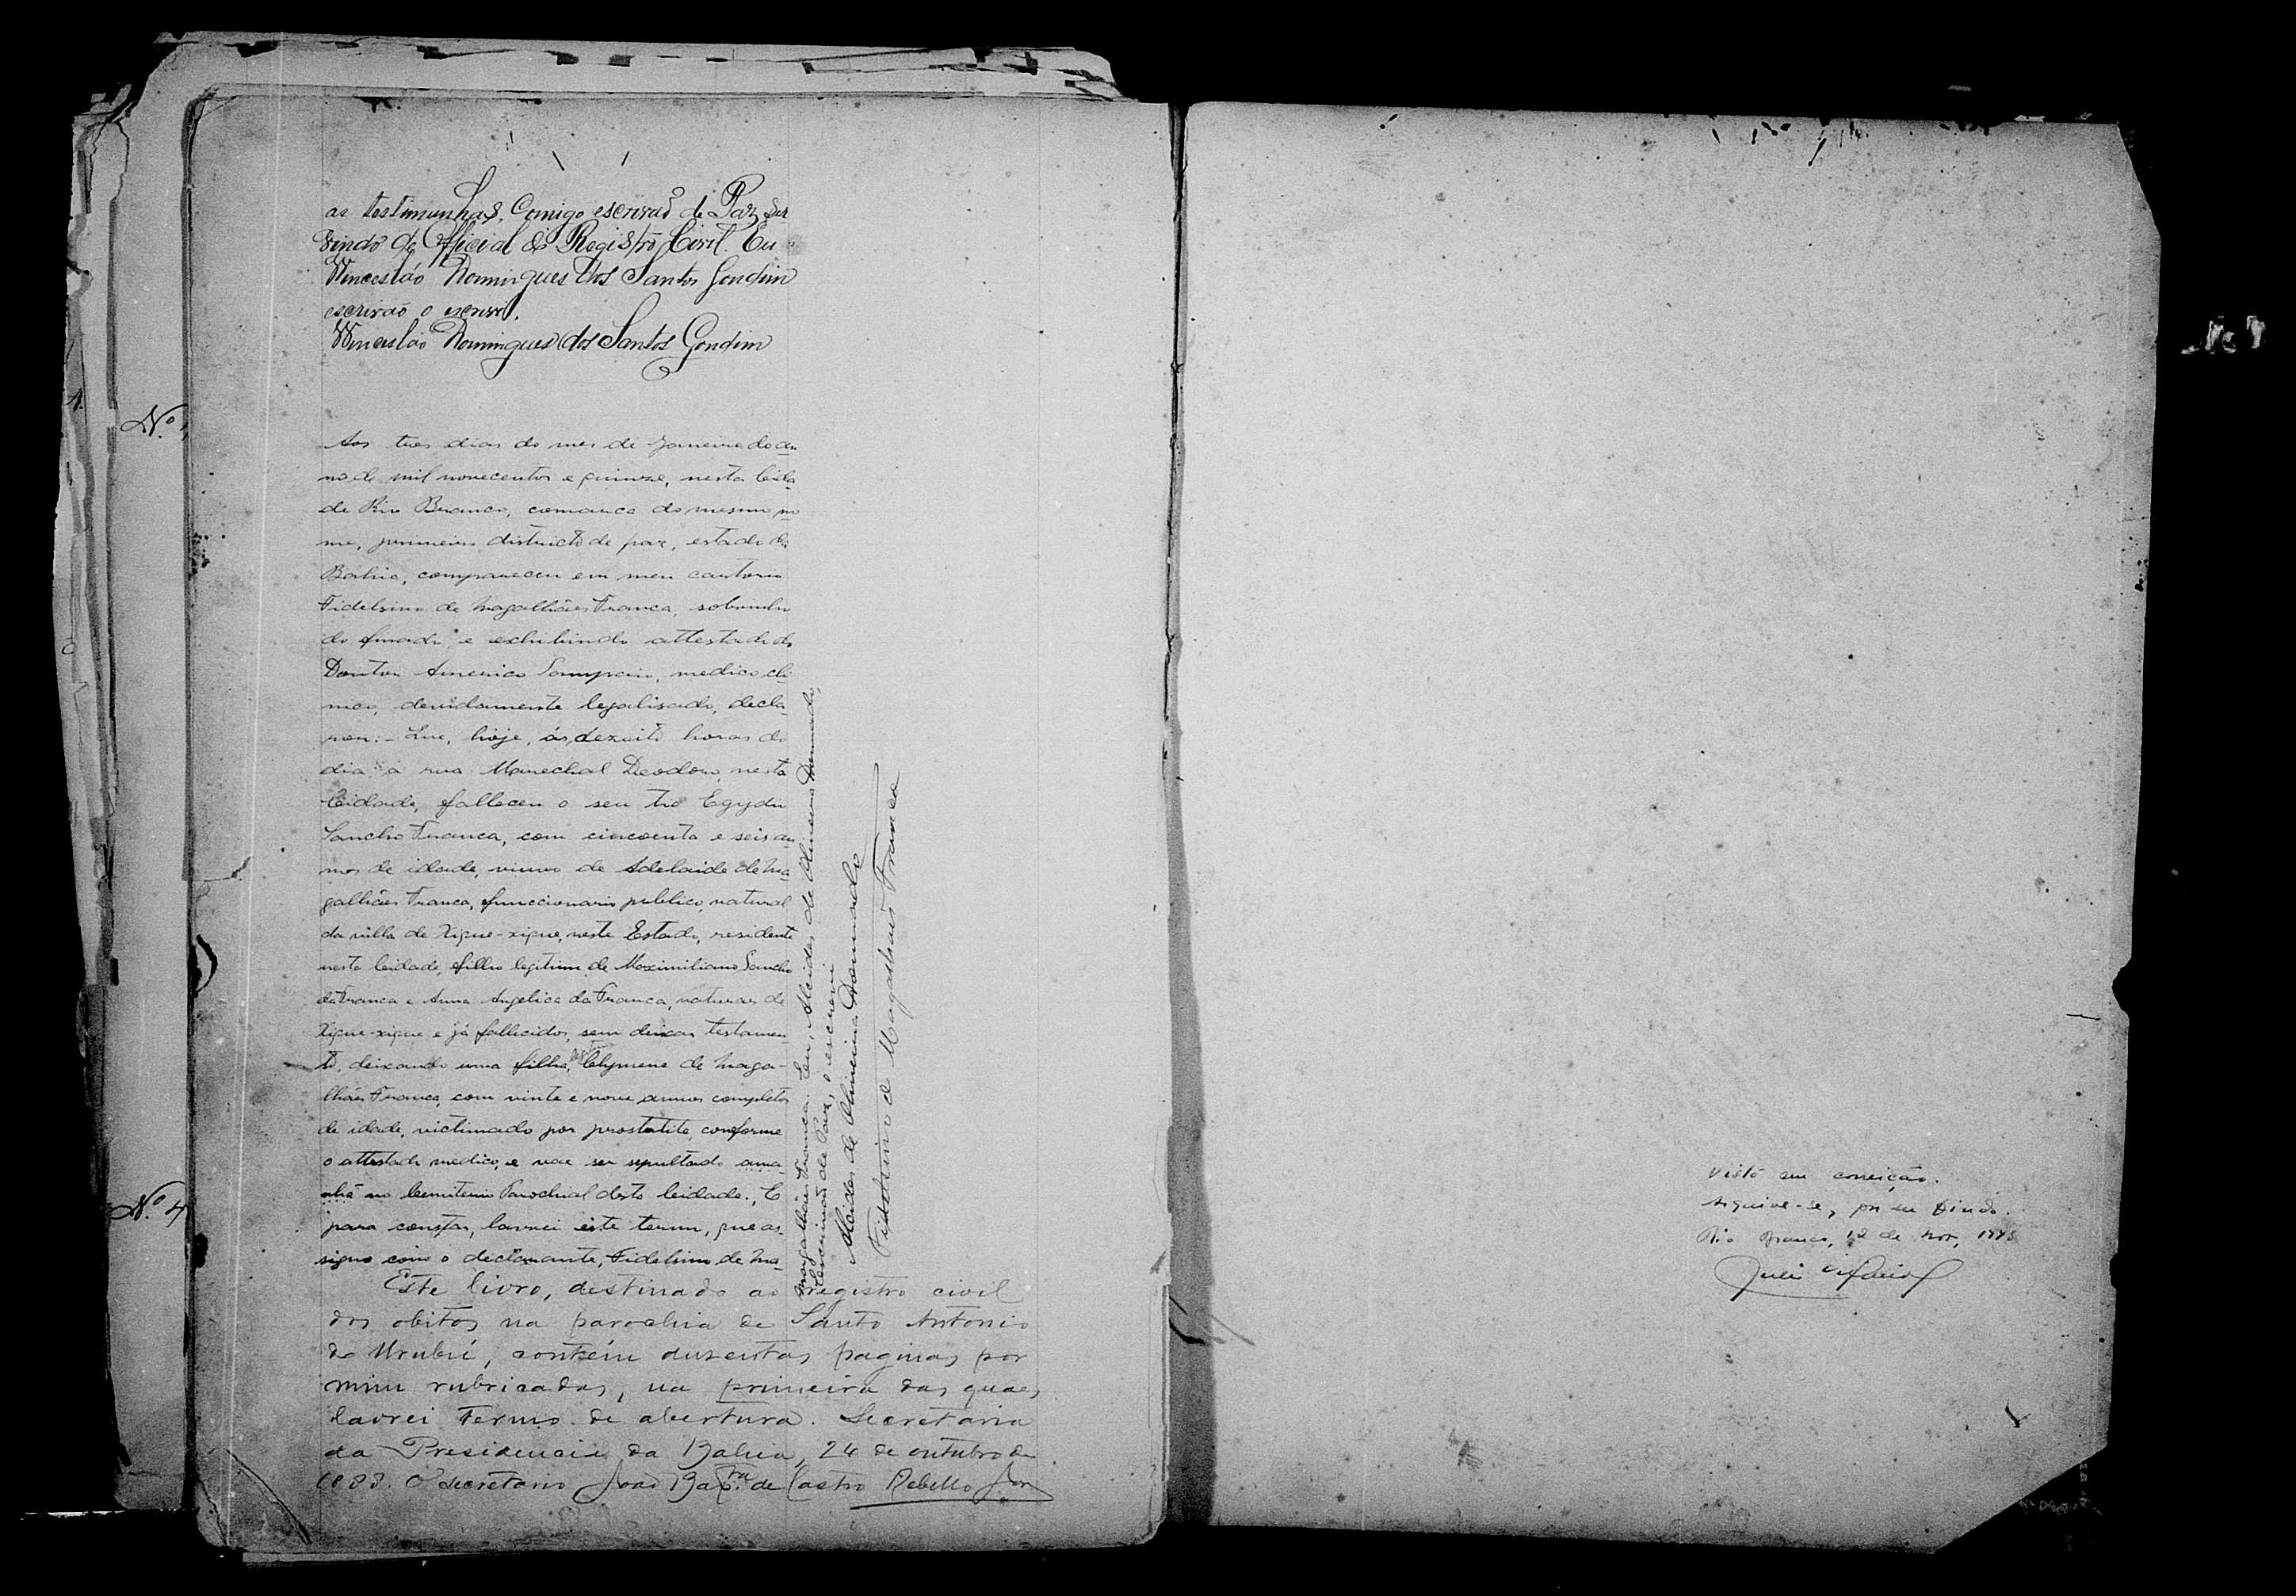 as testimunhas. Comigo escrivaõ de Paz ser
vindo de Official do Registro Civil. Eu
Wencesláo Domingues dos Santos Gondim
escrivaõ o escrevi.
Wenceslaõ Domingues dos Santos Gondim
Nº
Aos tres dias do mes de Janeiro do an
no de mil novecentos e quinze, nesta Cida
de Rio Branco, comarca do mesmo no
me, primeiro districto de paz, estado da
Bahia, compareceu em meu cartorio
Fidelsino de Magalhães Franca, sobrinho
do finado, e exhibindo attestado do
Doutor Americo Sampaio, medico cli
nico, devidamente legalisado, decla-
rou:- Que, hoje, ás dezoito horas do
dia á rua Marechal Deodoro, nesta
Cidade, falleceu o seu tio Egydio
Sancho Franca, com cincoenta e seis an
nos de idade, viuvo de Adelaide de Ma-
galhães Franca, funccionario publico, natural
da villa de Xique-xique, neste Estado, residente
nesta Cidade, filho legitimo de Maximiliano Sancho
da Franca e Anna Angelica da Franca, naturaes de
Xique-xique e já fallecidos, sem deixar testamen
to, deixando uma filha, Clymene de Maga-
lhães Franca, com vinte e nove annos completos
de idade, victimado por prostatite, conforme
o attestado medico, e vae ser sepultado ama-
nhã no Cemiterio Parochial desta Cidade. E
Nº 4
para constar, lavrei este termo, que as-
signo com o declarante, Fidelsino de Ma-
magalhães Franca. Eu, Alcides de Oliveira Dourado,
escrivaõ de Paz, o escrevi
Alcides de Oliveira Dourado
Fidelsino de Magalhaes Franca
Este livro, destinado ao registro civil
dos obitos na parochia de Santo Antonio
do Urubú, contém duzentas paginas por
mim rubricadas, na primeira das quaes
lavrei termo de abertura. Secretaria
da Presidencia da Bahia, 24 de outubro de
1888. O secretario João Bapta. de Castro Rebello Jor
Visto em correição.
Arquive-se, por ser findo.
Rio Branco, 12 de Nov,